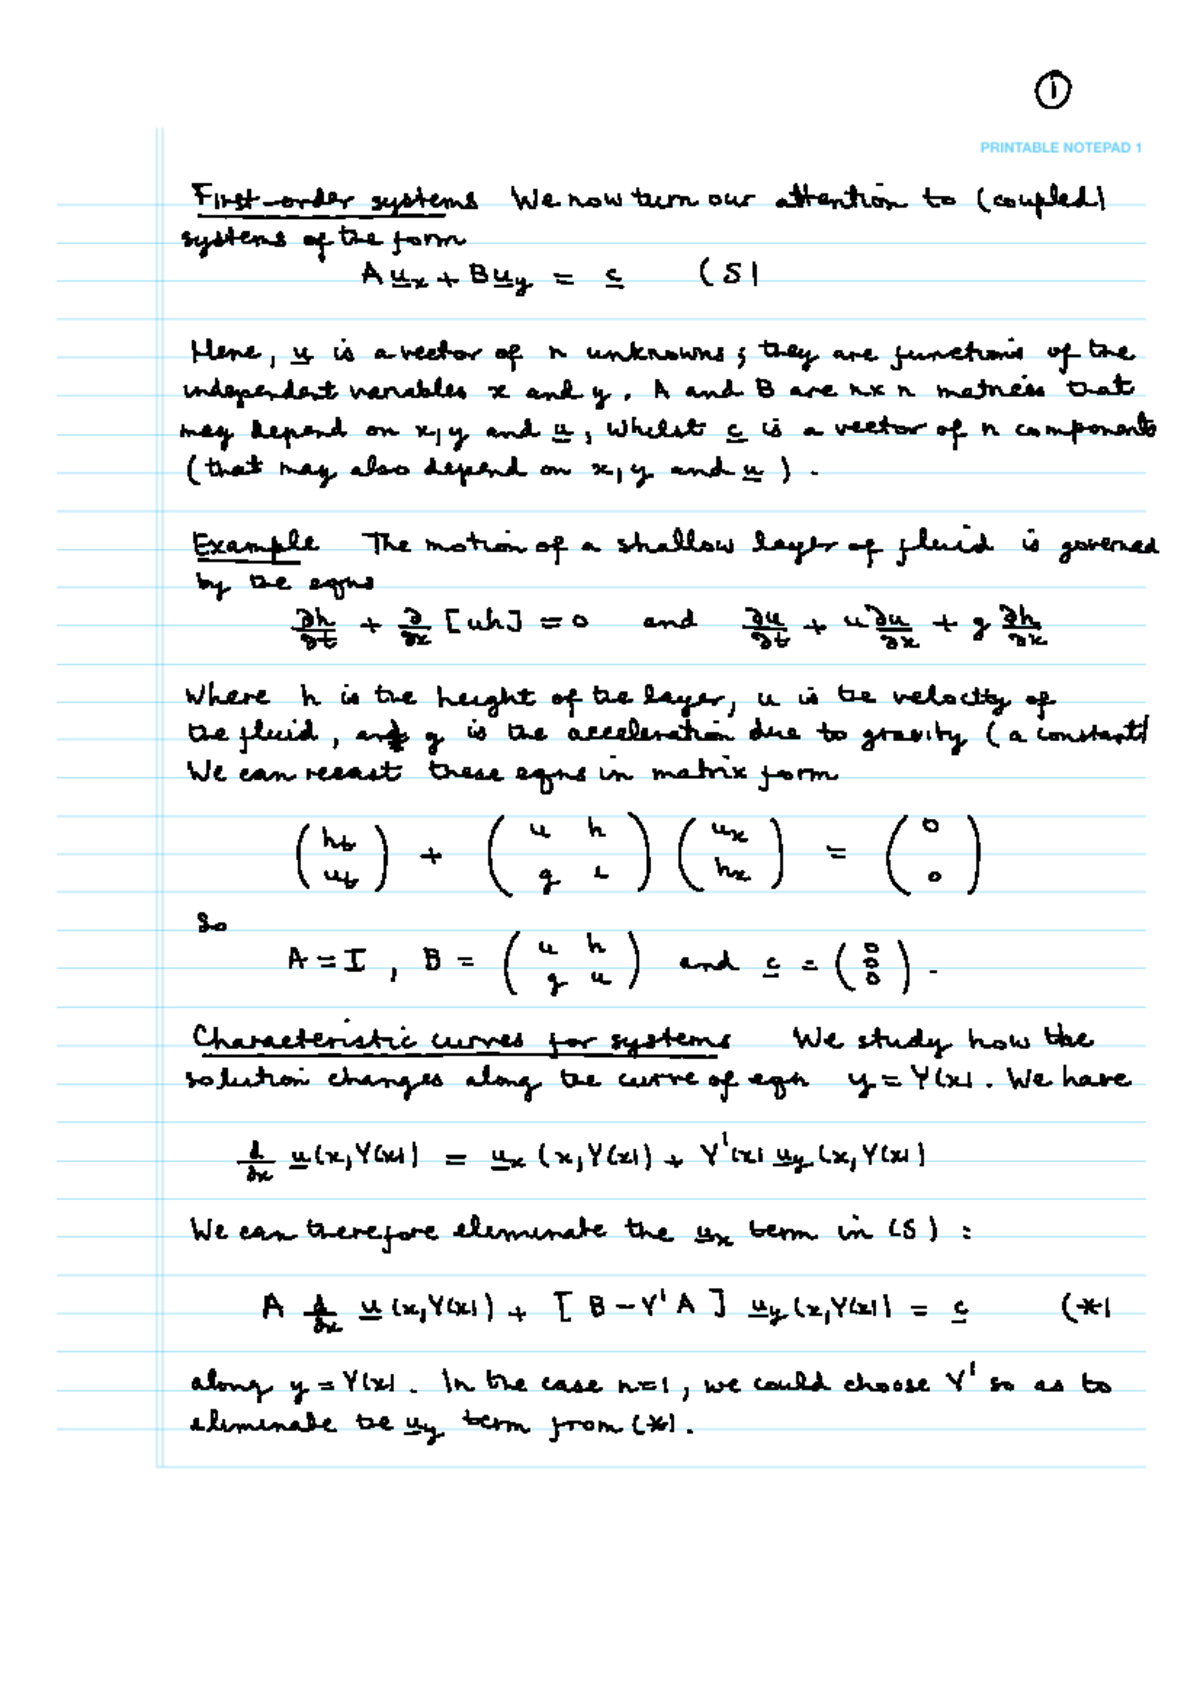 ①
PRINTABLE NOTEPAD 1
First-order systems We now turn our attention to (coupled)
systems of the form
A u̲x + B u̲y = c̲ (S)
Here, u̲ is a vector of n unknowns; they are functions of the
independent variables x and y. A and B are n×n matrices that
may depend on x, y and u̲, whilst c̲ is a vector of n components
(that may also depend on x, y and u̲).
Example The motion of a shallow layer of fluid is governed
by the eqns
∂h/∂t + ∂/∂x [uh] = 0 and ∂u/∂t + u ∂u/∂x + g ∂h/∂x
where h is the height of the layer, u is the velocity of
the fluid, and g is the acceleration due to gravity (a constant)
We can recast these eqns in matrix form
(ht ut) + (u h g u) (ux hx) = (0 0)
So
A = I, B = (u h g u) and c̲ = (0 0 0).
Characteristic curves for systems We study how the
solution changes along the curve of eqn y = Y(x). We have
d/dx u̲(x,Y(x)) = u̲x (x,Y(x)) + Y'(x) u̲y (x,Y(x))
We can therefore eliminate the u̲x term in (S):
A d/dx u̲ (x,Y(x)) + [B - Y'A] u̲y (x,Y(x)) = c̲ (*)
along y = Y(x). In the case n=1, we could choose Y' so as to
eliminate the u̲y term from (*).